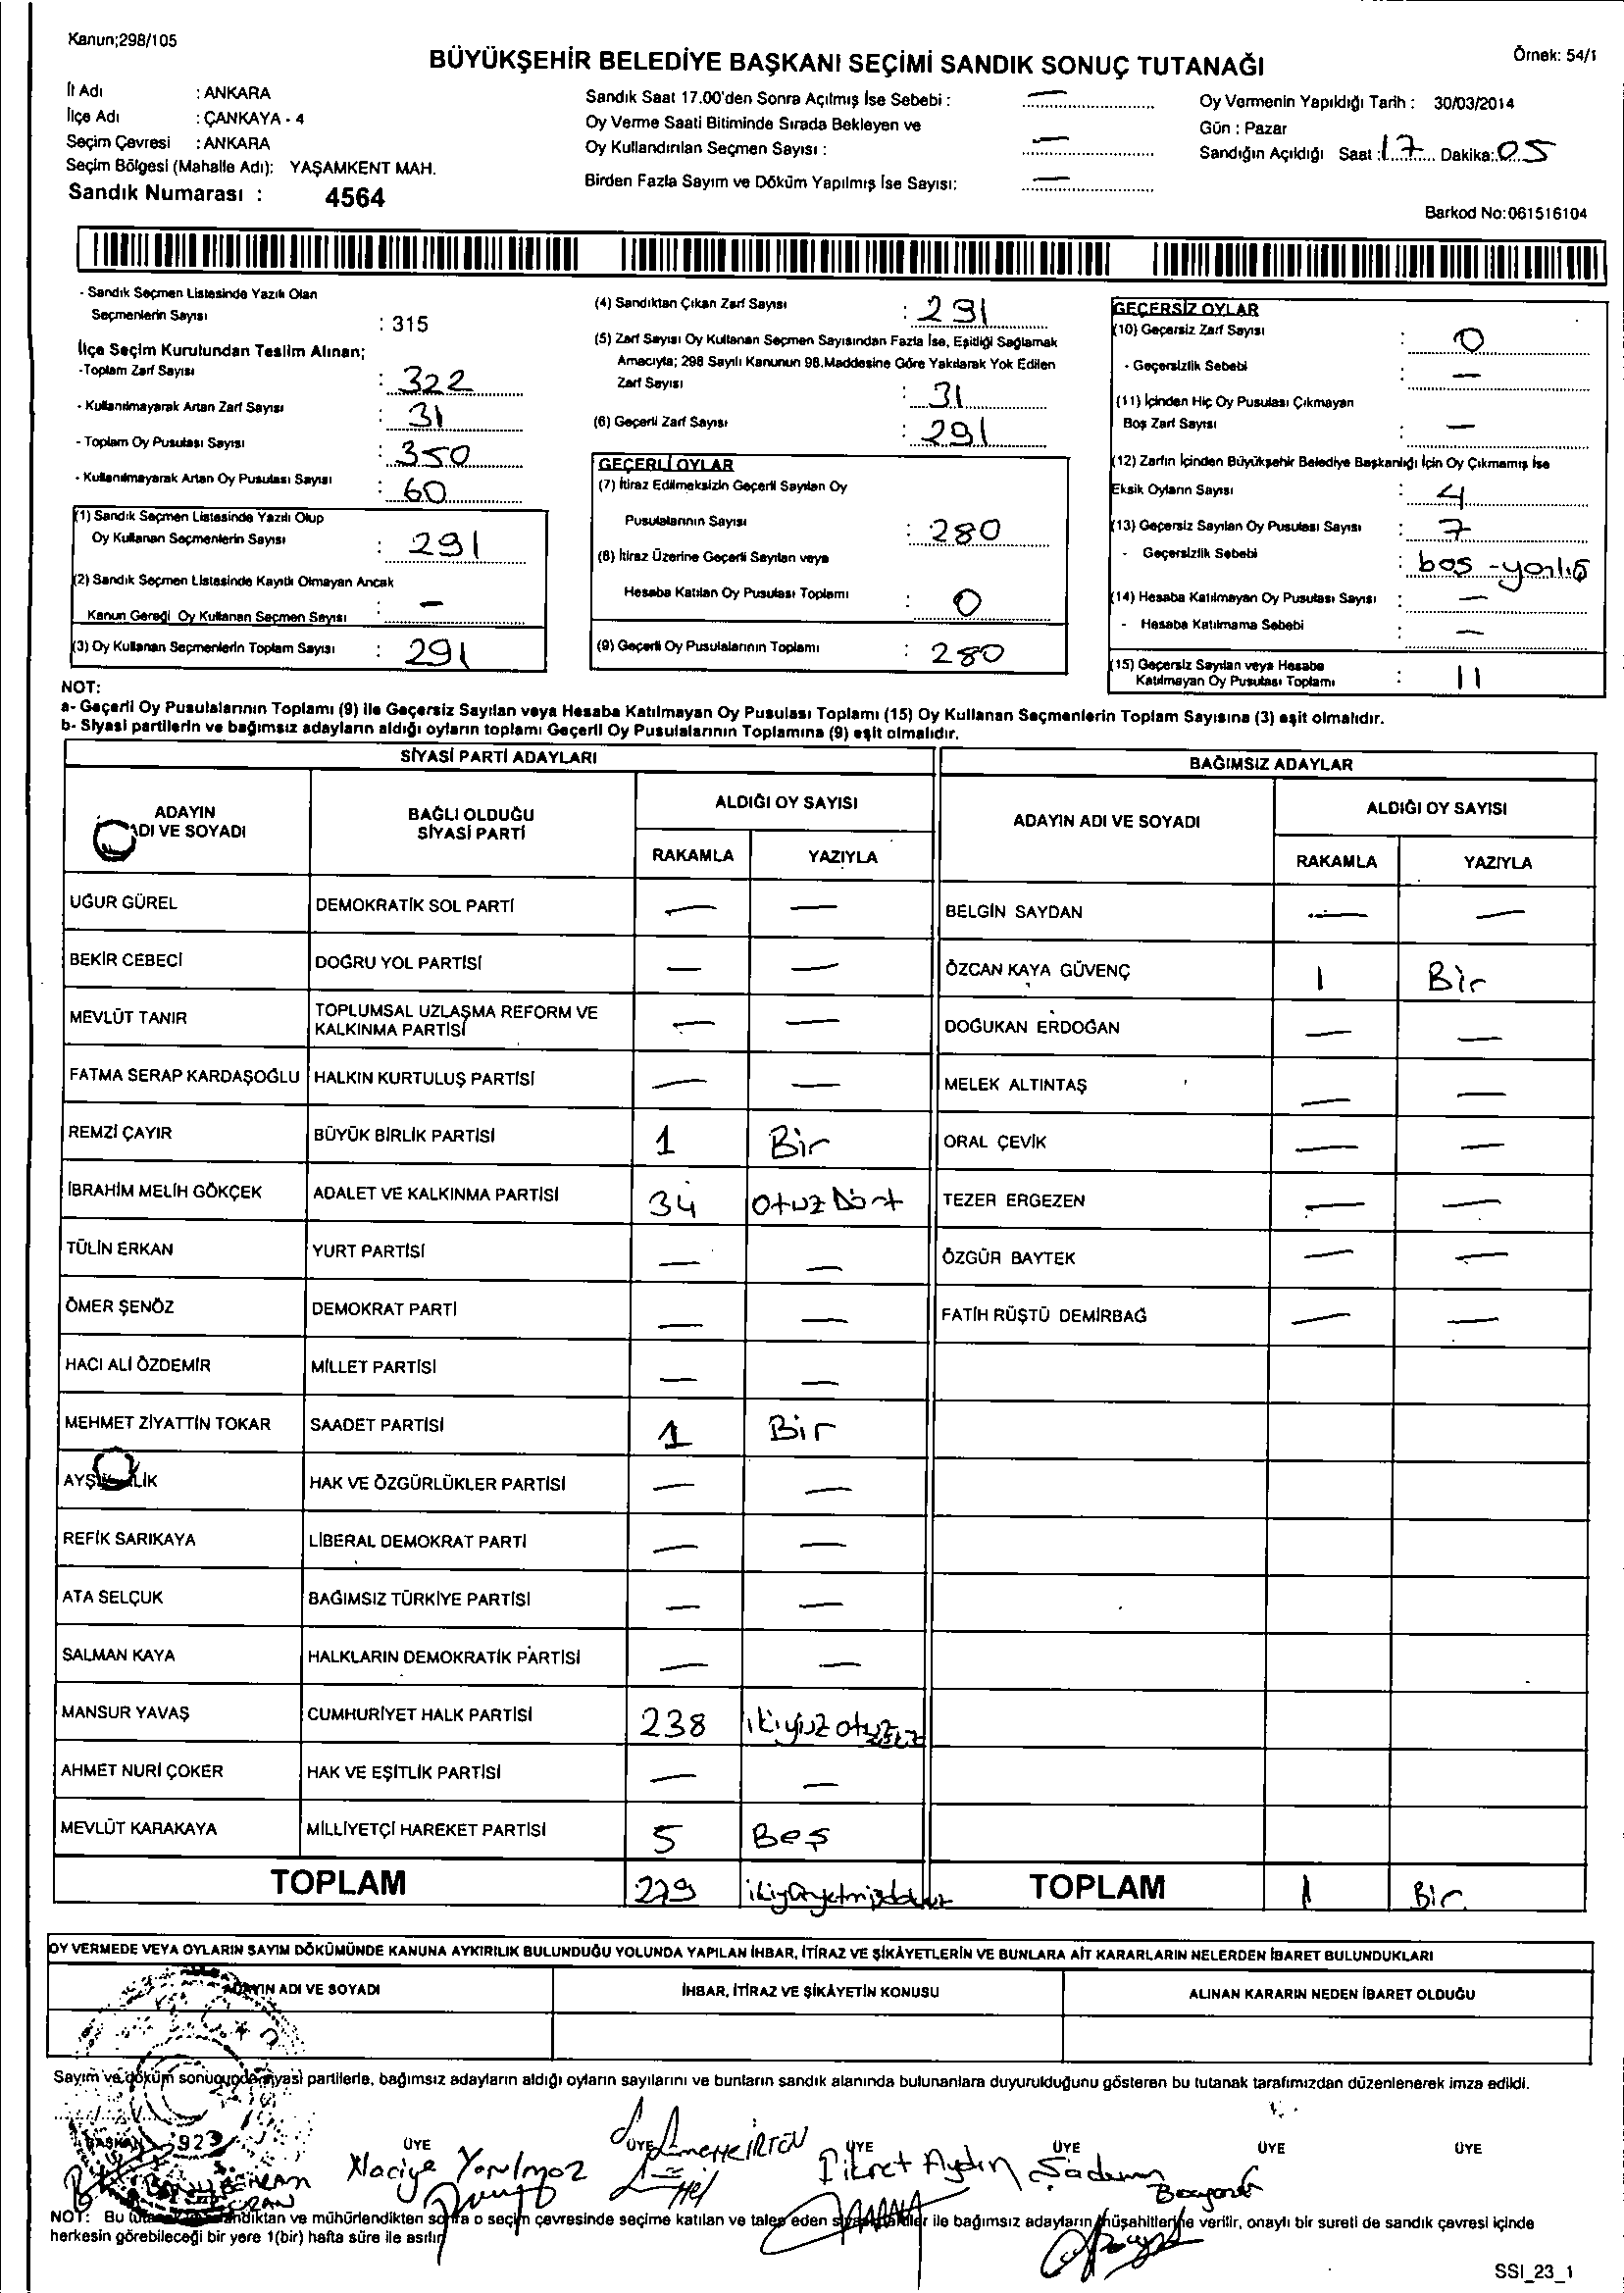 Kanun;298/105
Örnek: 54/1
BÜYÜKŞEHİR BELEDİYE BAŞKANI SEÇİMİ SANDIK SONUÇ TUTANAĞI
İl Adı : ANKARA
İlçe Adı : ÇANKAYA - 4
Seçim Çevresi : ANKARA
Seçim Bölgesi (Mahalle Adı): YAŞAMKENT MAH.
Sandık Numarası : 4564
Sandık Saat 17.00'den Sonra Açılmış İse Sebebi : —
Oy Verme Saati Bitiminde Sırada Bekleyen ve
Oy Kullandırılan Seçmen Sayısı : —
Birden Fazla Sayım ve Döküm Yapılmış İse Sayısı: —
Oy Vermenin Yapıldığı Tarih : 30/03/2014
Gün : Pazar
Sandığın Açıldığı Saat : 17 Dakika: 05
Barkod No:061516104
- Sandık Seçmen Listesinde Yazılı Olan
Seçmenlerin Sayısı : 315
İlçe Seçim Kurulundan Teslim Alınan;
-Toplam Zarf Sayısı : 322
- Kullanılmayarak Artan Zarf Sayısı : 31
- Toplam Oy Pusulası Sayısı : 350
- Kullanılmayarak Artan Oy Pusulası Sayısı : 60
(1) Sandık Seçmen Listesinde Yazılı Olup
Oy Kullanan Seçmenlerin Sayısı : 291
(2) Sandık Seçmen Listesinde Kayıtlı Olmayan Ancak
Kanun Gereği Oy Kullanan Seçmen Sayısı : —
(3) Oy Kullanan Seçmenlerin Toplam Sayısı : 291
(4) Sandıktan Çıkan Zarf Sayısı : 291
(5) Zarf Sayısı Oy Kullanan Seçmen Sayısından Fazla İse, Eşitliği Sağlamak
Amacıyla; 298 Sayılı Kanunun 98.Maddesine Göre Yakılarak Yok Edilen
Zarf Sayısı : 31
(6) Geçerli Zarf Sayısı : 291
GEÇERLİ OYLAR
(7) İtiraz Edilmeksizin Geçerli Sayılan Oy
Pusulalarının Sayısı : 280
(8) İtiraz Üzerine Geçerli Sayılan veya
Hesaba Katılan Oy Pusulası Toplamı : 0
(9) Geçerli Oy Pusulalarının Toplamı : 280
GEÇERSİZ OYLAR
(10) Geçersiz Zarf Sayısı : 0
- Geçersizlik Sebebi : —
(11) İçinden Hiç Oy Pusulası Çıkmayan
Boş Zarf Sayısı : —
(12) Zarfın İçinden Büyükşehir Belediye Başkanlığı İçin Oy Çıkmamış İse
Eksik Oyların Sayısı : 4
(13) Geçersiz Sayılan Oy Pusulası Sayısı : 7
- Geçersizlik Sebebi : boş - yanlış
(14) Hesaba Katılmayan Oy Pusulası Sayısı : —
- Hesaba Katılmama Sebebi : —
(15) Geçersiz Sayılan veya Hesaba
Katılmayan Oy Pusulası Toplamı : 11
NOT:
a- Geçerli Oy Pusulalarının Toplamı (9) ile Geçersiz Sayılan veya Hesaba Katılmayan Oy Pusulası Toplamı (15) Oy Kullanan Seçmenlerin Toplam Sayısına (3) eşit olmalıdır.
b- Siyasi partilerin ve bağımsız adayların aldığı oyların toplamı Geçerli Oy Pusulalarının Toplamına (9) eşit olmalıdır.
SİYASİ PARTİ ADAYLARI
ADAYIN ADI VE SOYADI
BAĞLI OLDUĞU SİYASİ PARTİ
ALDIĞI OY SAYISI
RAKAMLA YAZIYLA
UĞUR GÜREL DEMOKRATİK SOL PARTİ — —
BEKİR CEBECİ DOĞRU YOL PARTİSİ — —
MEVLÜT TANIR TOPLUMSAL UZLAŞMA REFORM VE KALKINMA PARTİSİ — —
FATMA SERAP KARDAŞOĞLU HALKIN KURTULUŞ PARTİSİ — —
REMZİ ÇAYIR BÜYÜK BİRLİK PARTİSİ 1 Bir
İBRAHİM MELİH GÖKÇEK ADALET VE KALKINMA PARTİSİ 34 Otuz Dört
TÜLİN ERKAN YURT PARTİSİ — —
ÖMER ŞENÖZ DEMOKRAT PARTİ — —
HACI ALİ ÖZDEMİR MİLLET PARTİSİ — —
MEHMET ZİYATTİN TOKAR SAADET PARTİSİ 1 Bir
HAK VE ÖZGÜRLÜKLER PARTİSİ — —
REFİK SARIKAYA LİBERAL DEMOKRAT PARTİ — —
ATA SELÇUK BAĞIMSIZ TÜRKİYE PARTİSİ — —
SALMAN KAYA HALKLARIN DEMOKRATİK PARTİSİ — —
MANSUR YAVAŞ CUMHURİYET HALK PARTİSİ 238 ikiyüz otuzsekiz
AHMET NURİ ÇOKER HAK VE EŞİTLİK PARTİSİ — —
MEVLÜT KARAKAYA MİLLİYETÇİ HAREKET PARTİSİ 5 Beş
TOPLAM 279 ikiyüzyetmişdokuz
BAĞIMSIZ ADAYLAR
ADAYIN ADI VE SOYADI
ALDIĞI OY SAYISI
RAKAMLA YAZIYLA
BELGİN SAYDAN — —
ÖZCAN KAYA GÜVENÇ 1 Bir
DOĞUKAN ERDOĞAN — —
MELEK ALTINTAŞ — —
ORAL ÇEVİK — —
TEZER ERGEZEN — —
ÖZGÜR BAYTEK — —
FATİH RÜŞTÜ DEMİRBAĞ — —
TOPLAM 1 Bir
OY VERMEDE VEYA OYLARIN SAYIM DÖKÜMÜNDE KANUNA AYKIRILIK BULUNDUĞU YOLUNDA YAPILAN İHBAR, İTİRAZ VE ŞİKÂYETLERİN VE BUNLARA AİT KARARLARIN NELERDEN İBARET BULUNDUKLARI
ADAYIN ADI VE SOYADI
İHBAR, İTİRAZ VE ŞİKÂYETİN KONUSU
ALINAN KARARIN NEDEN İBARET OLDUĞU
Sayım ve döküm sonucunda siyasi partilerle, bağımsız adayların aldığı oyların sayılarını ve bunların sandık alanında bulunanlara duyurulduğunu gösteren bu tutanak tarafımızdan düzenlenerek imza edildi.
BAŞKAN ÜYE ÜYE ÜYE ÜYE ÜYE ÜYE
Naciye Yorulmaz
Fikret Aydın
NOT: Bu tutanak sandıktan ve mühürlendikten sonra o seçim çevresinde seçime katılan ve talep eden siyasi partiler ile bağımsız adayların müşahitlerine verilir, onaylı bir sureti de sandık çevresi içinde
herkesin görebileceği bir yere 1(bir) hafta süre ile asılır.
SSI_23_1